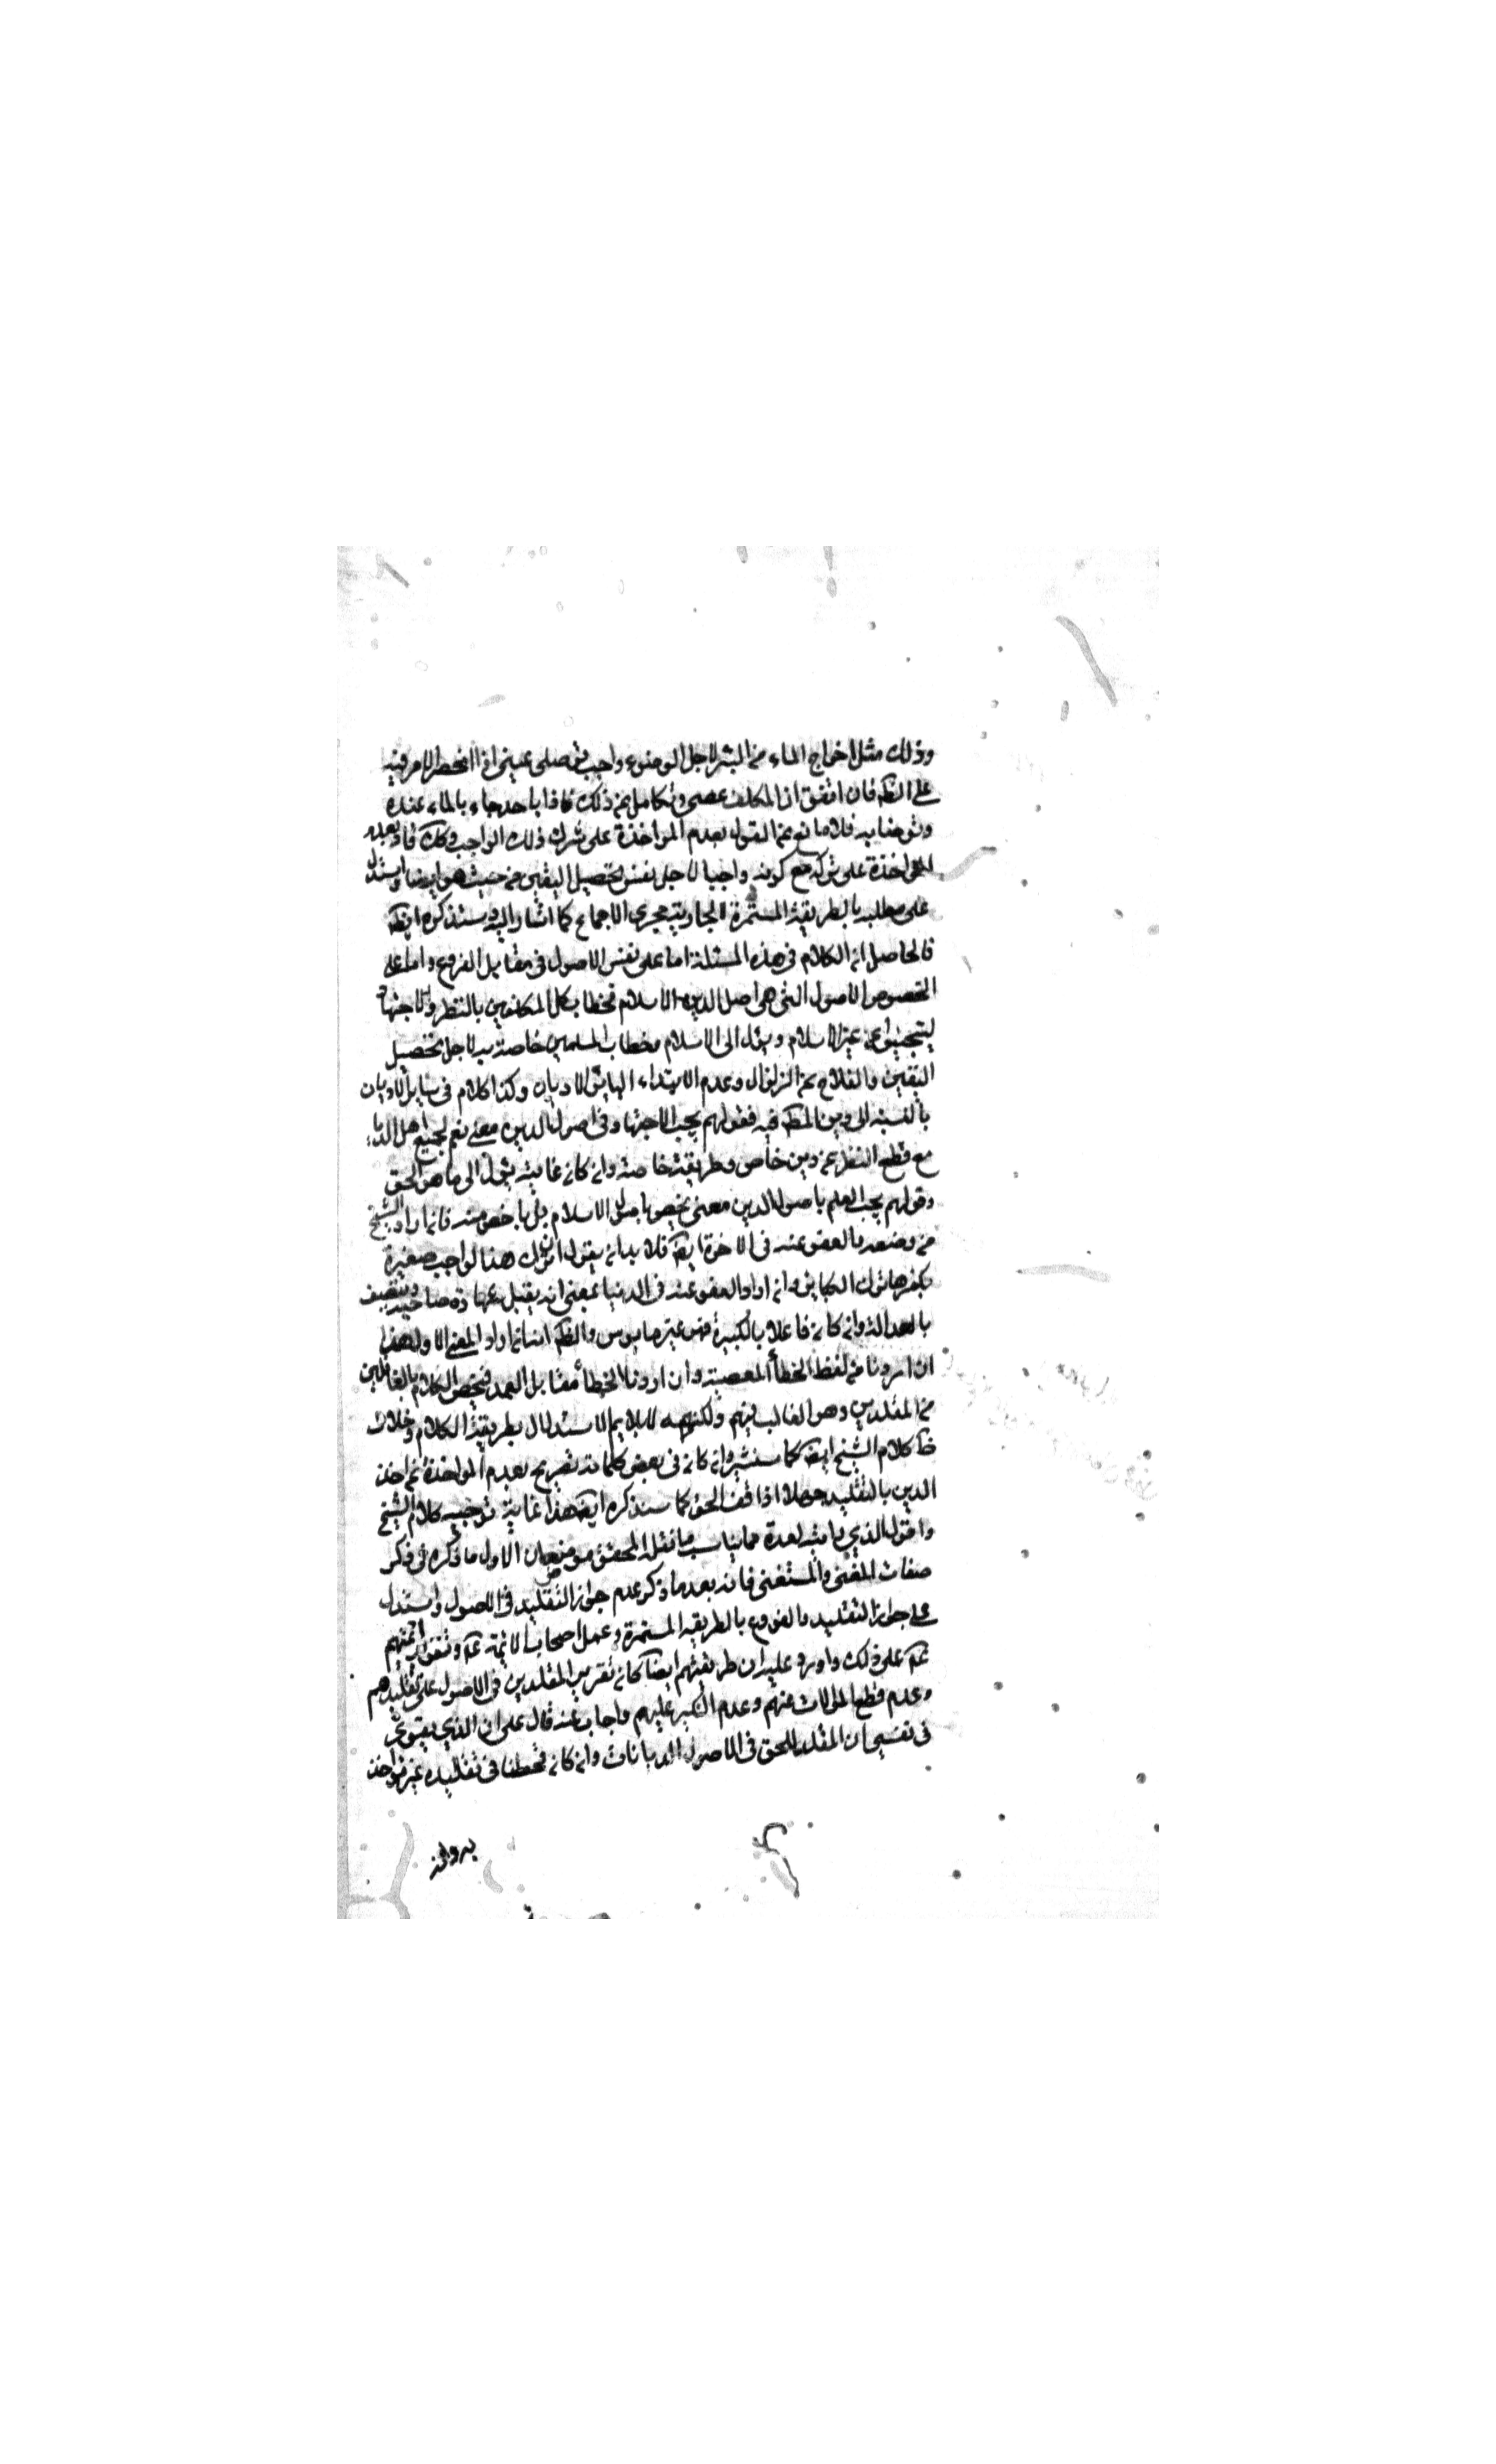 وذلك مثل اخراج الماء من البئر لاجل الوضوء واجب توصلى عينى اذا انحصر الامر فيه
على الظ فان اتفق ان المكلف عصى وتكاهل عن ذلك فاذا باحد جاء بالماء عنده
وتوضنا به فلا مانع من القول بعدم المواخذة على ترك ذلك الواجب وكك فا وبعدم
المواخذة على تركه مع كونه واجبا لاجل نفس تحصيل اليقين من حيث هو ايضا واستدل
على مطلبه بالطريقة المستمرة الجارية مجرى الاجماع كما اشار اليه وسنذكره ايضا
فالحاصل ان الكلام فى هذه المسئلة اما على نفس الاصول فى مقابل الفروع واما على
الخصوص الاصول التى هى اصل الدين الاسلام فخطاب كل المكلفين بالنظر والاجتهاد
ليتجنبوا عن غير الاسلام ويئل الى الاسلام فخطاب المسلمين خاصة به لاجل تحصيل
اليقين والفلاح عن الزلزال وعدم الابتداء الى باقى الاديان وكذا كلام فى ساير الاديان
بالنسبة الى دين المظ فيه فقولهم يجب الاجتهاد فى اصول الدين معنى يعم لجميع اهل الديا
مع قطع النظر عن دين خاص وطريقة خاصة وان كان غايته يئول الى ما هو الحق
وقولهم يجب العلم باصول الدين معنى يخص باصول الاسلام بل باخص منه فان اراد الشيخ
من وضعه بالعفو عنه فى الاخرة ايضا فلا بد ان يقول ان ترك هذا الواجب صغيرة
يكفرها ترك الكباير وان اراد العفو عنه فى الدنيا بمعنى انه يقبل شهادة صاحبه ويتصف
بالعدالة وان كان فاعلا بالكبيرة فهو غير مايوس والظ انه انما اراد المعنى الاول هذا
ان اردنا من لفظ الخطأ المعصية وان اردنا الخطأ مقابل العمد فيخص الكلام بالغافلين
من المقلدين وهو الغالب فيهم ولكنه لا يلايم الاستدلال بطريقة الكلام وخلاف
ظ كلام الشيخ ايضا كما سنشير وان كان فى بعض كلماته تصريح بعدم المواخذة لمن اخذ
الدين بالتقليد جهلا اذا وافق الحق كما سنذكره ايضا هذا غاية توجيه كلام الشيخ
واقول الذى رايته لعدة مما يناسب ما نقله المحقق موضعان الاول ما ذكره فى ذكر
صفات المفتى والمستفتى فانه بعد ما ذكر عدم جواز التقليد فى الاصول واستدل
على جواز التقليد بالفروع بالطريقه المستمرة وعمل اصحاب الائمة عم وتقرير ائمتهم
عم على ذلك واورد عليه ان طريقتهم ايضا كان تقرير المقلدين فى الاصول على تقليدهم
وعدم قطع الموالات عنهم وعدم النكير عليهم واجاب عنه قال على ان الذى يقوى
فى نفسى ان المقلد للحق فى الاصول الديانات وان كان مخطئا فى تقليده غير مؤاخذ